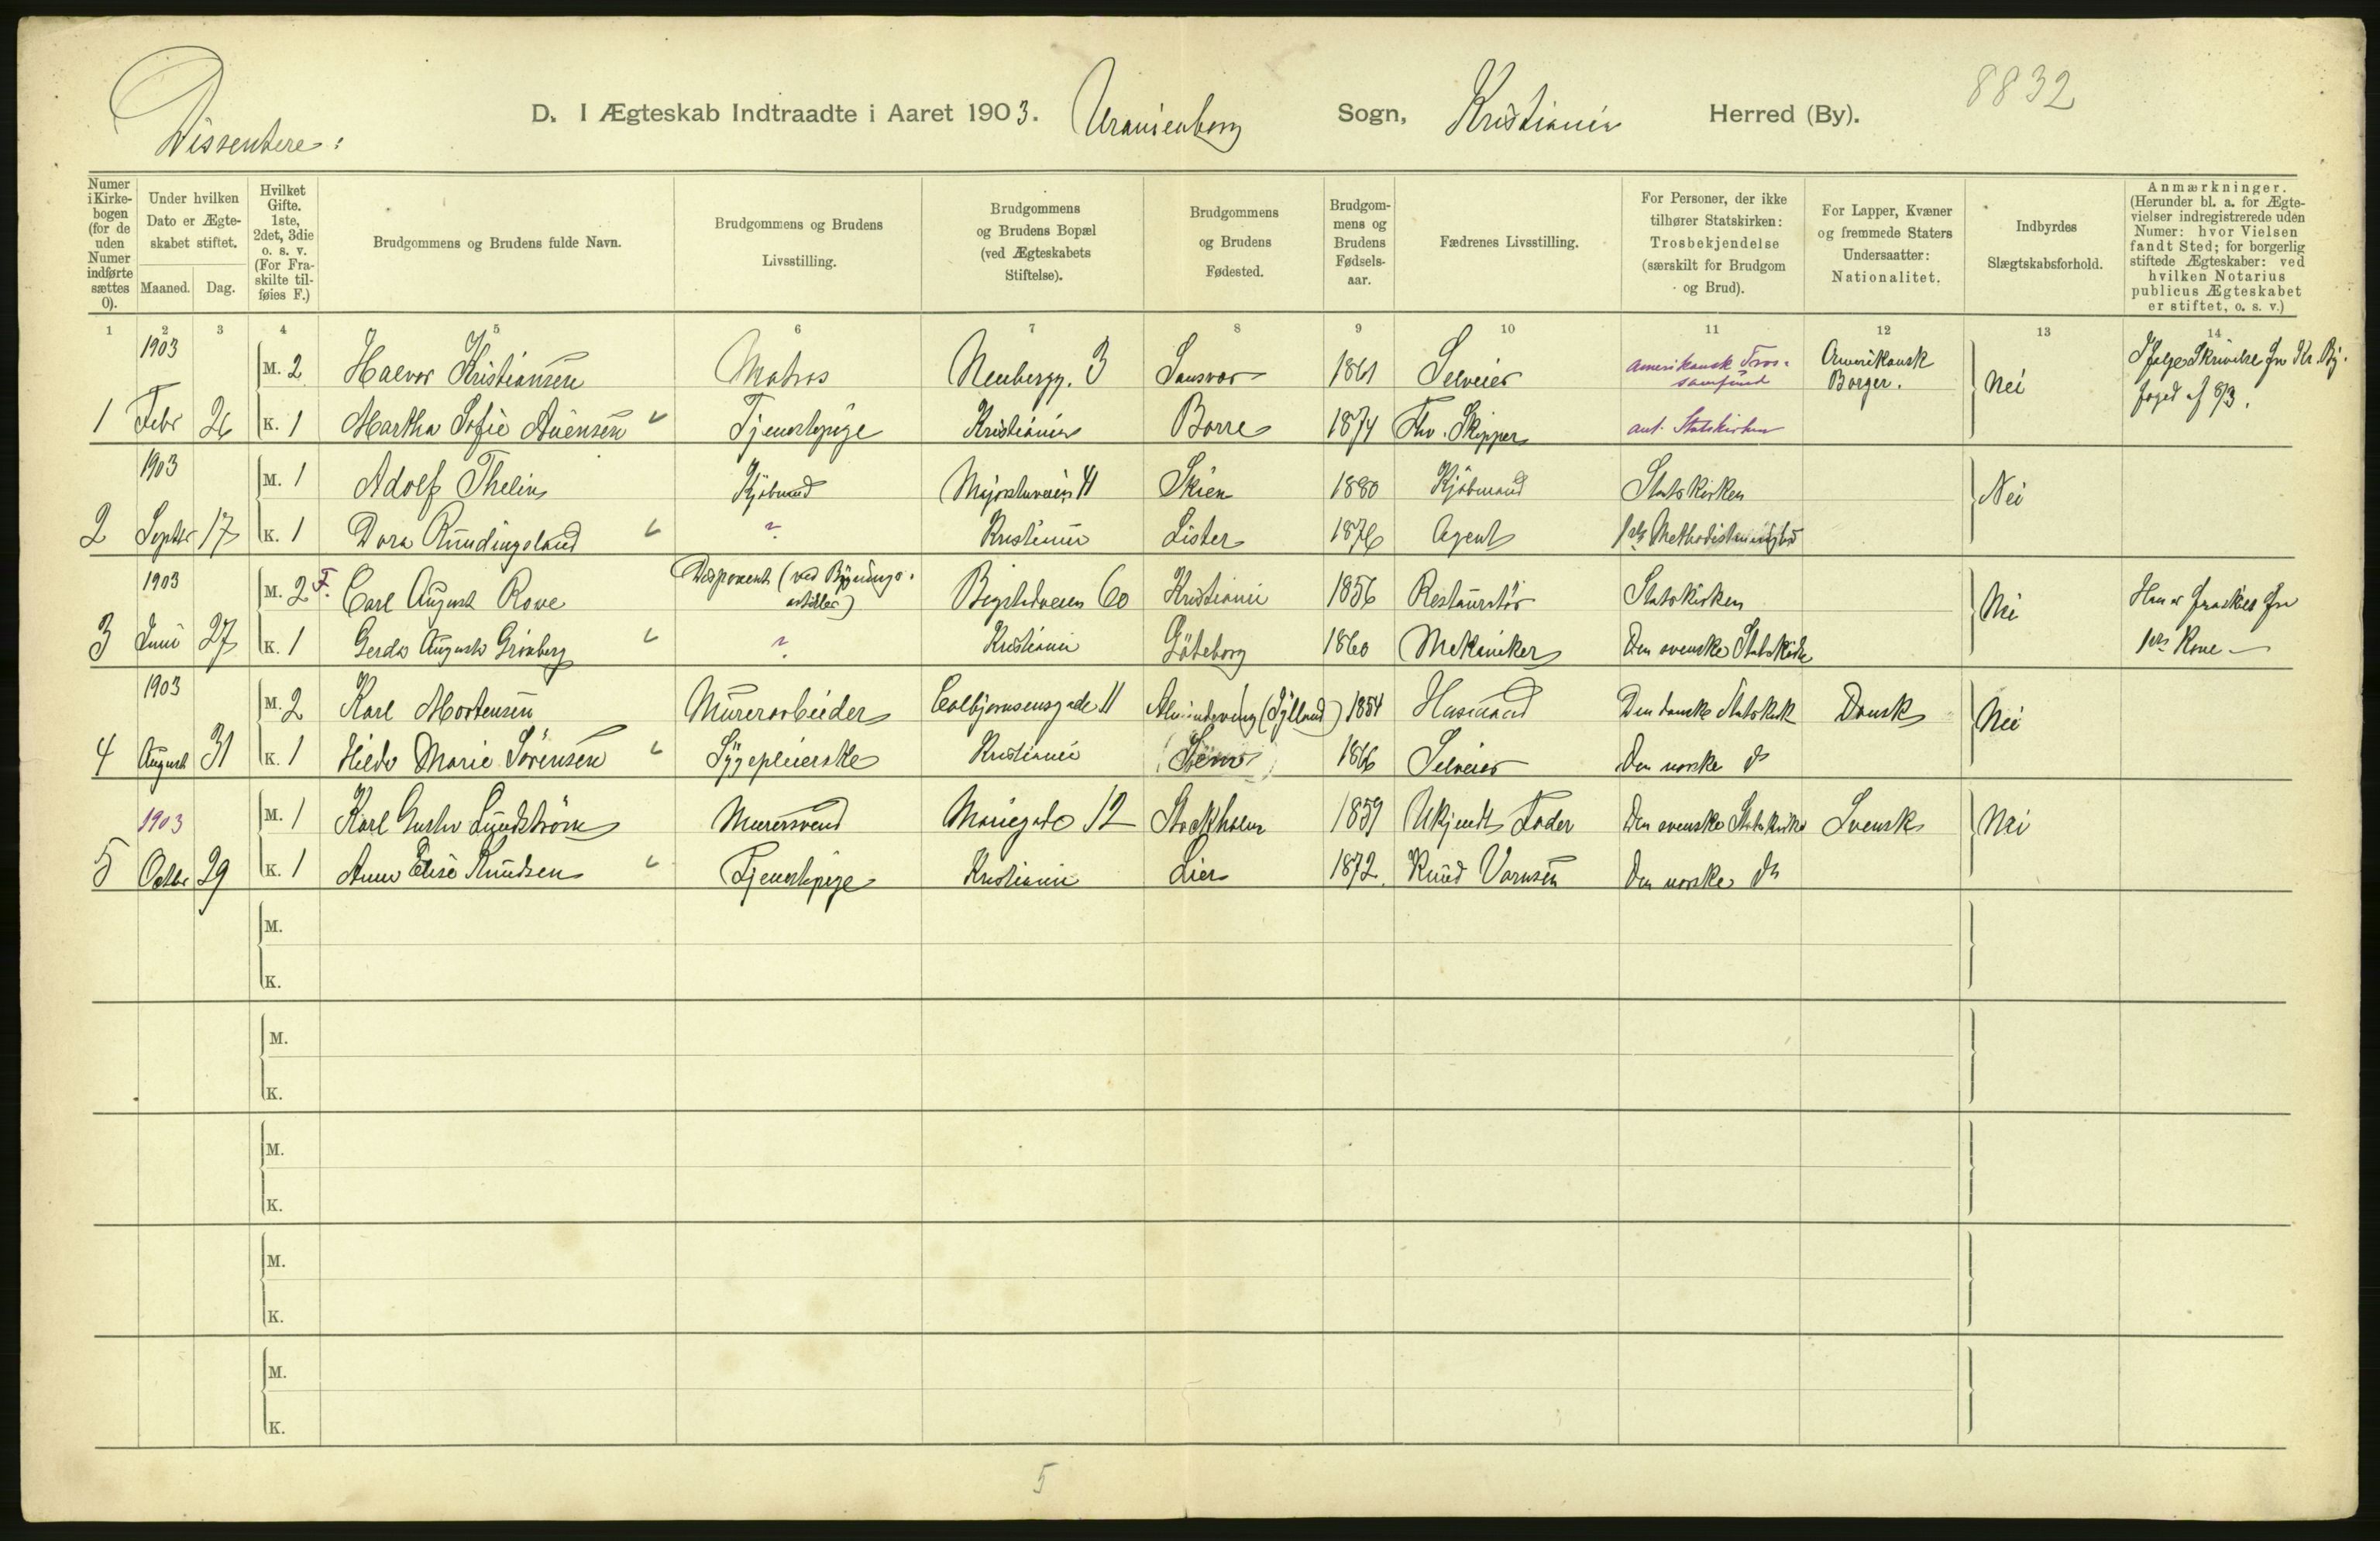 8832
Dissentere:
D. I Ægteskab Indtraadte i Aaret 1903. Uranienborg Sogn, Kristiania Herred (By).
Numer i Kirke-bogen (for de uden Numer indførte sættes 0).
Under hvilken Dato er Ægte-skabet stiftet.
Maaned. Dag.
Hvilket Gifte. 1ste, 2det, 3die o. s. v. (For Fra-skilte til-føies F.)
Brudgommens og Brudens fulde Navn.
Brudgommens og Brudens Livsstilling.
Brudgommens og Brudens Bopæl (ved Ægteskabets Stiftelse).
Brudgommens og Brudens Fødested.
Brudgom-mens og Brudens Fødsels-aar.
Fædrenes Livsstilling.
For Personer, der ikke tilhører Statskirken: Trosbekjendelse (særskilt for Brudgom og Brud).
For Lapper, Kvæner og fremmede Staters Undersaatter: Nationalitet.
Indbyrdes Slægtskabsforhold.
Anmærkninger. (Herunder bl. a. for Ægte-vielser indregistrerede uden Numer: hvor Vielsen fandt Sted; for borgerlig stiftede Ægteskaber: ved hvilken Notarius publicus Ægteskabet er stiftet, o. s. v.)
1 2 3 4 5 6 7 8 9 10 11 12 13 14
1903 M. 2 Halvor Kristiansen Matros Neubergg. 3 Sansvær 1861 Selveier amerikansk Tros-samfund Amerikansk Borger. Nei Ifølge Skrivelse fra Kr. By-foged af 8/3.
1 Febr 26 K. 1 Martha Sofie Auensen Tjenestepige Kristiania Borre 1874 Fhv. Skipper ant. Statskirken
1903 M. 1 Adolf Thelin Kjøbmand Majorstuveien 41 Skien 1880 Kjøbmand Statskirken Nei
2 Septbr 17 K. 1 Dora Rundingsland ? Kristiania Lister 1876 Agent
1903 M. 2 F. Carl August Rove Disponent (ved Bygnings-artikler) Bygdøveien 60 Kristiania 1856 Restauratør Statskirken Nei Han er fraskilt fra
3 Juni 27 K. 1 Gerda Augusta Grönberg ? Kristiania Göteborg 1860 Mekaniker Den svenske Statskirke 1ste Kone
1903 M. 2 Karl Mortensen Murerarbeider Colbjørnsensgade 11 (Jylland) 1854 Husmand Den danske Statskirk Dansk Nei
4 August 31 K. 1 Hilda Marie Sörensen Sygepleierske Kristiania 1866 Selveier Den norske do
1903 M. 1 Karl Gustav Lundström Murersvend Mariegade 12 Stockholm 1859 Ukjendt Fader Den svenske Statskirke Svensk Nei
5 Octbr 29 K. 1 Anna Elise Knudsen Tjenestepige Kristiania Lier 1872. Knud Den norske do
M.
K.
M.
K.
M.
K.
M.
K.
M.
K.
5